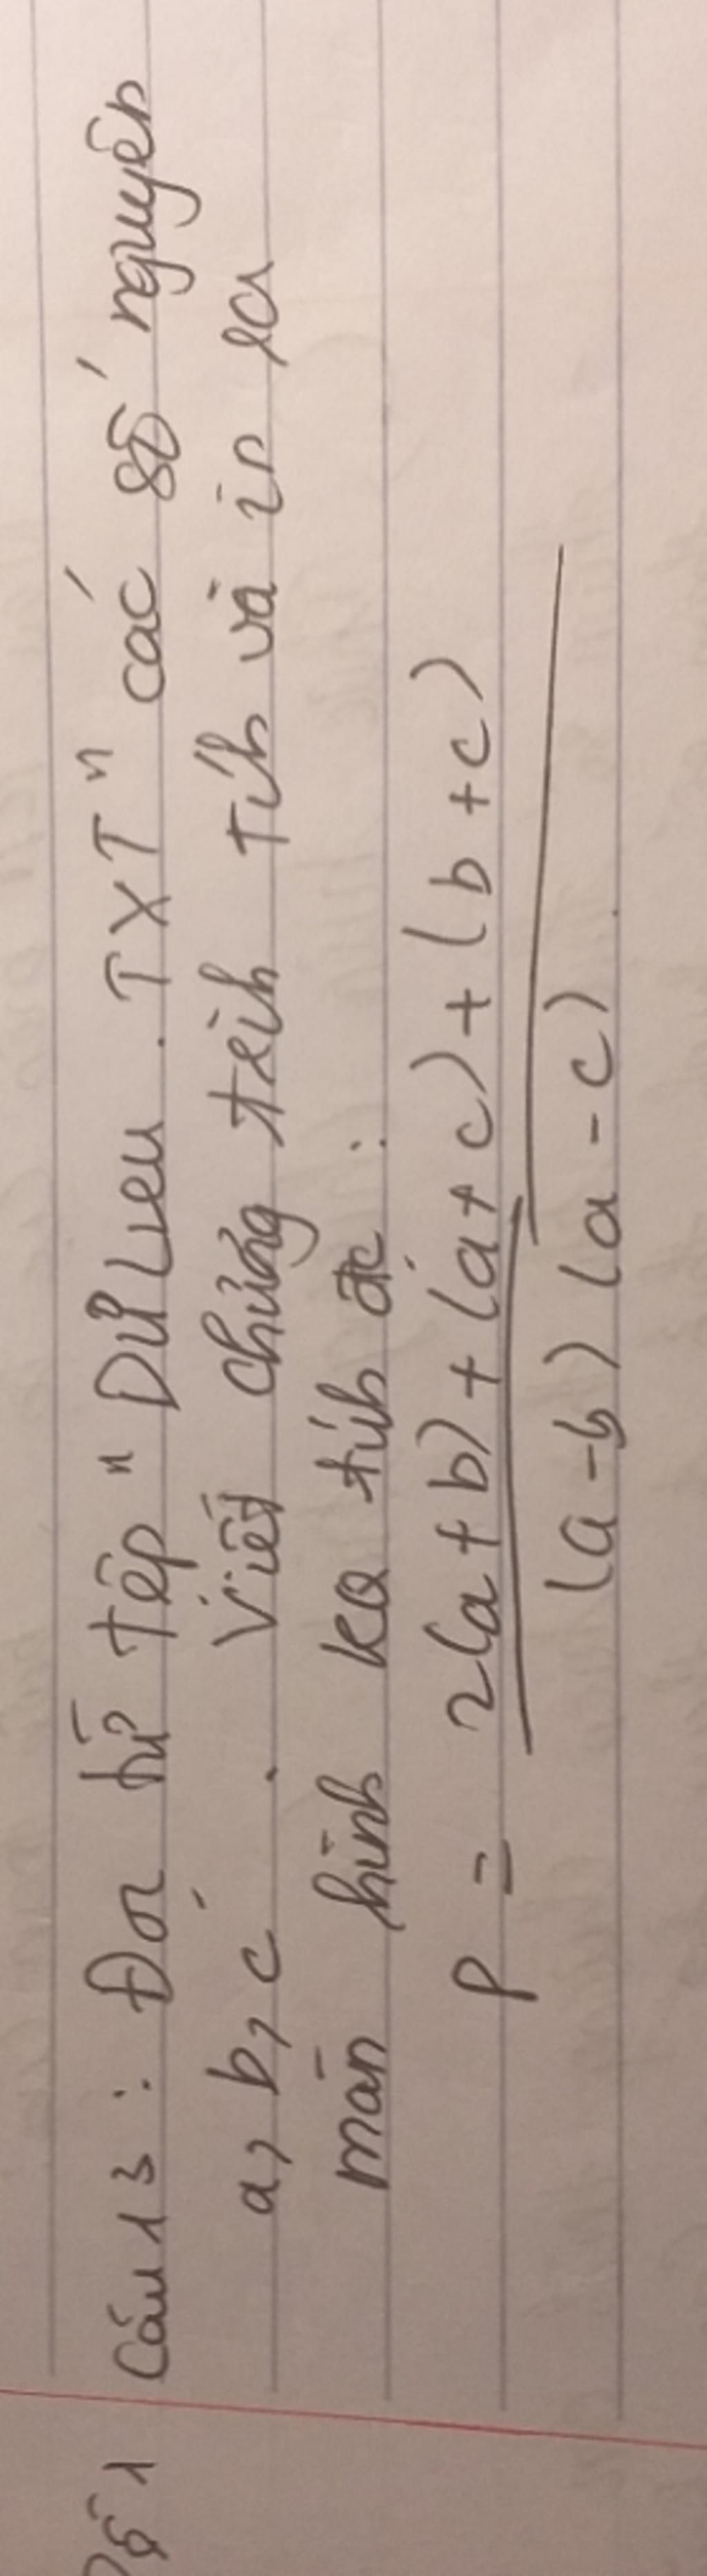 Câu 13: Đọc từ tệp "DữLieu.TXT" các số nguyên
a, b, c. Viết chương trình tính và in ra
màn hình KQ tính đc:
P = 2(a+b)+(a+c)+(b+c)
(a-b)(a-c)